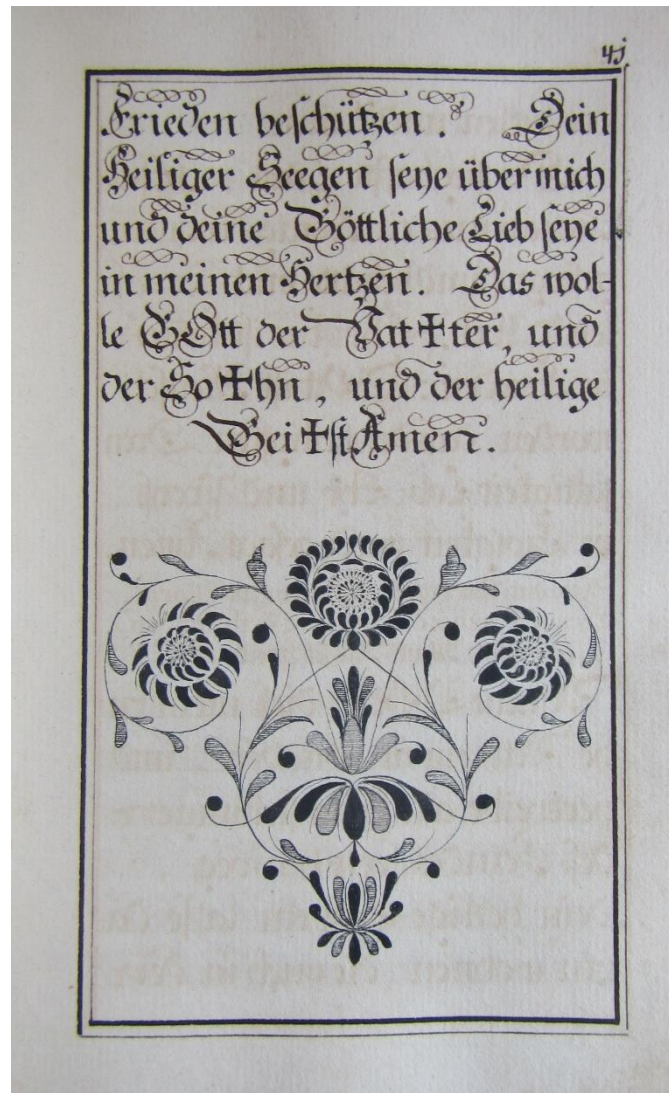 41
Frieden beschützen. Dein
Heiliger Seegen seye über mich
und deine Göttliche Lieb seye
in meinen Hertzen. Das wol-
le GOtt der Vat✝ter, und
der So✝hn, und der heilige
Gei✝st Amen.